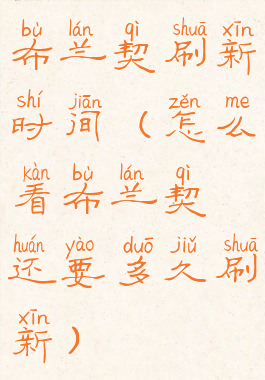 bù lán qì shuā xīn
布兰契刷新
shí jiān zěn me
时间（怎么
kàn bù lán qì
看布兰契
huán yào duō jiǔ shuā
还要多久刷
xīn
新）